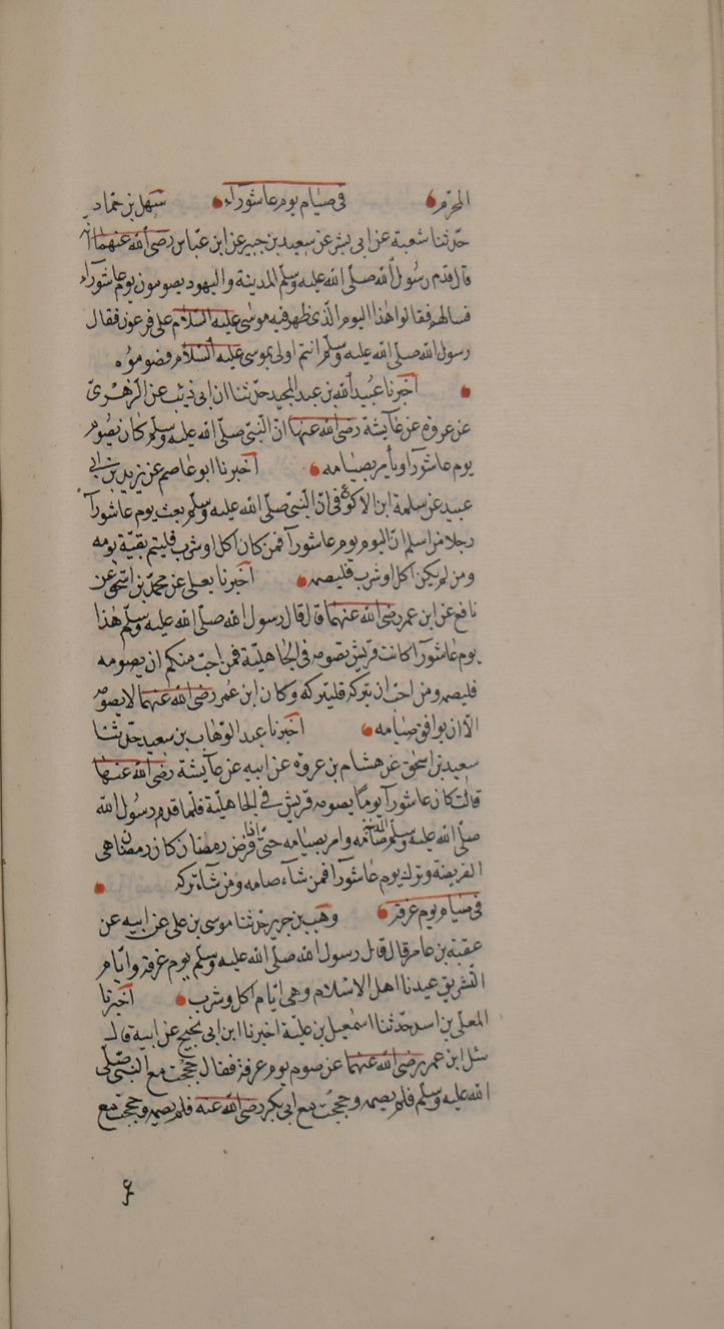 المحرّم في صيام يوم عاشوراء سهل بن حماد
حدّثنا شعبة عن ابى بشر عن سعيد بن جبير عن ابن عبّاس رضى الله عنهما انه
قال قدم رسول الله صلّى الله عليه وسلّم المدينة واليهود يصومون يوم عاشوراء
فسالهم فقالوا هذا اليوم الّذى ظهر فيه موسى عليه السّلام على فرعون فقال
رسول الله صلّى الله عليه وسلّم انتم اولى بموسى عليه السّلام فصوموه
اخبرنا عبيد الله بن عبد المجيد حدّثنا ابن ابى ذيب عن الزّهرىّ
عن عروة عن عآيشة رضى الله عنها انّ النّبىّ صلّى الله عليه وسلّم كان يصوم
يوم عاشورآ ويأمر بصيامه اخبرنا ابو عاصم عن يزيد بن ابى
عبيد عن سلمة ابن الاكوع انّ النّبىّ صلّى الله عليه وسلّم بعث يوم عاشورآ
رجلا من اسلم انّ اليوم يوم عاشورآ فمن كان اكل او شرب فليتم بقيّة يومه
ومن لم يكن اكل او شرب فليصمه اخبرنا يعلى عن محمّد بن اسحق عن
نافع عن ابن عمر رضى الله عنهما قال قال رسول الله صلّى الله عليه وسلّم هذا
يوم عاشورآ كانت قريش تصومه فى الجاهليّة فمن احبّ منكم ان يصومه
فليصمه ومن احبّ ان يتركه فليتركه وكان ابن عمر رضى الله عنهما لا يصومه
الّا ان يوافق صيامه اخبرنا عبد الوهّاب بن سعيد حدّثنا
سعيد بن اسحق عن هشام بن عروة عن ابيه عن عآيشة رضى الله عنها
قالت كان عاشورآ يوما يصومه قريش فى الجاهليّة فلمّا قدم رسول الله
صلّى الله عليه وسلّم المدينة صامه وامر بصيامه حتّى اذا فرض رمضان كان رمضان هى
الفريضة وترك يوم عاشورآ فمن شآء صامه ومن شآء تركه
فى صيام يوم عرفة وهب بن جرير حدّثنا موسى بن على عن ابيه عن
عقبة بن عامر قال قال رسول الله صلّى الله عليه وسلّم يوم عرفة وايّام
التّشريق عيدنا اهل الاسلام وهى ايّام اكل وشرب اخبرنا
المعلى بن اسد حدّثنا اسمعيل بن عليّة اخبرنا ابن ابى نجيح عن ابيه قال
سئل ابن عمر رضى الله عنهما عن صوم يوم عرفة فقال حججت مع النّبىّ صلّى
الله عليه وسلّم فلم يصمه وحججت مع ابى بكر رضى الله عنه فلم يصمه وحججت مع